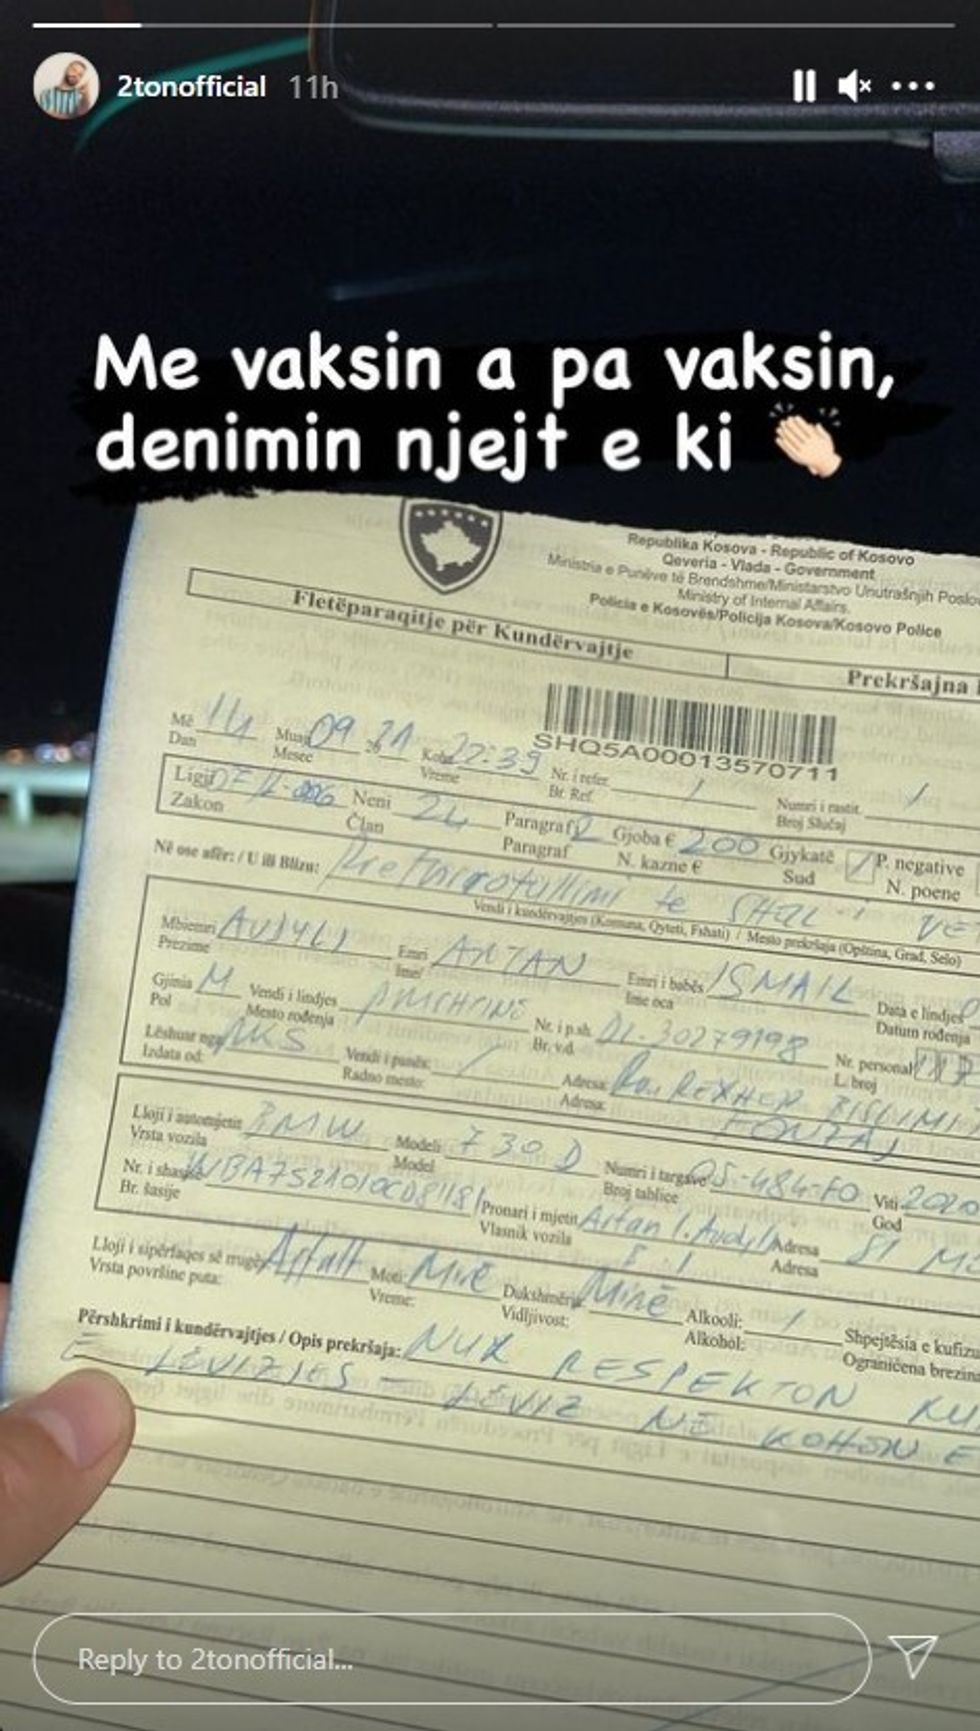 2tonofficial 11h
Me vaksin a pa vaksin,
denimin njejt e ki
Republika Kosova - Republic of Kosovo
Qeveria - Vlada - Government
Ministria e Punëve të Brendshme/Ministarstvo Unutrašnjih Poslo
Ministry of Internal Affairs.
Policia e Kosovës/Policija Kosova/Kosovo Police
Fletëparaqitje për Kundërvajtje
Prekršajna
SHQ5A00013570711
Më 11 Muaj 09 20 21 Koha 22:39 Nr. i refer. / Numri i rastit. /
Dan Mesec Vreme Br. Ref. Broj Slučaj
Ligji Neni 24 Paragraf 2 Gjoba € 200 Gjykatë / P. negative
Zakon Član Paragraf N. kazne € Sud N. poene
Në ose afër: / U ili Blizu: Rrethrrotullimi te SHELL-i
Vendi i kundërvajtjes (Komuna, Qyteti, Fshati) / Mesto prekršaja (Opština, Grad, Selo)
Mbiemri AVDYLI Emri ARTAN Emri i babës ISMAIL Data e lindjes
Prezime Ime/ Ime oca Datum rođenja
Gjinia M Vendi i lindjes PRISHTINË Nr. i p.sh. DL.30279198 Nr. personal
Pol Mesto rođenja Br. v.d. L. broj
Lëshuar nga MKS Vendi i punës: / Adresa: REXHEP BISLIMI
Izdata od: Radno mesto: Adresa:
Lloji i automjetit BMW Modeli 730 D Numri i targave 05-484-FO Viti 2010
Vrsta vozila Model Broj tablice God
Nr. i shasisë Pronari i mjetit Artan I. Avdyli Adresa
Br. šasije Vlasnik vozila Adresa
Lloji i sipërfaqes së rrugës Asfalt Moti: Mirë Dukshmëria: Mirë Alkooli: / Shpejtësia e kufizu
Vrsta površine puta: Vreme: Vidljivost: Alkohol: Ograničena brzina
Përshkrimi i kundërvajtjes / Opis prekršaja: NUK RESPEKTON KU
E LËVIZJES - LËVIZ NË KOHËN E
Reply to 2tonofficial...